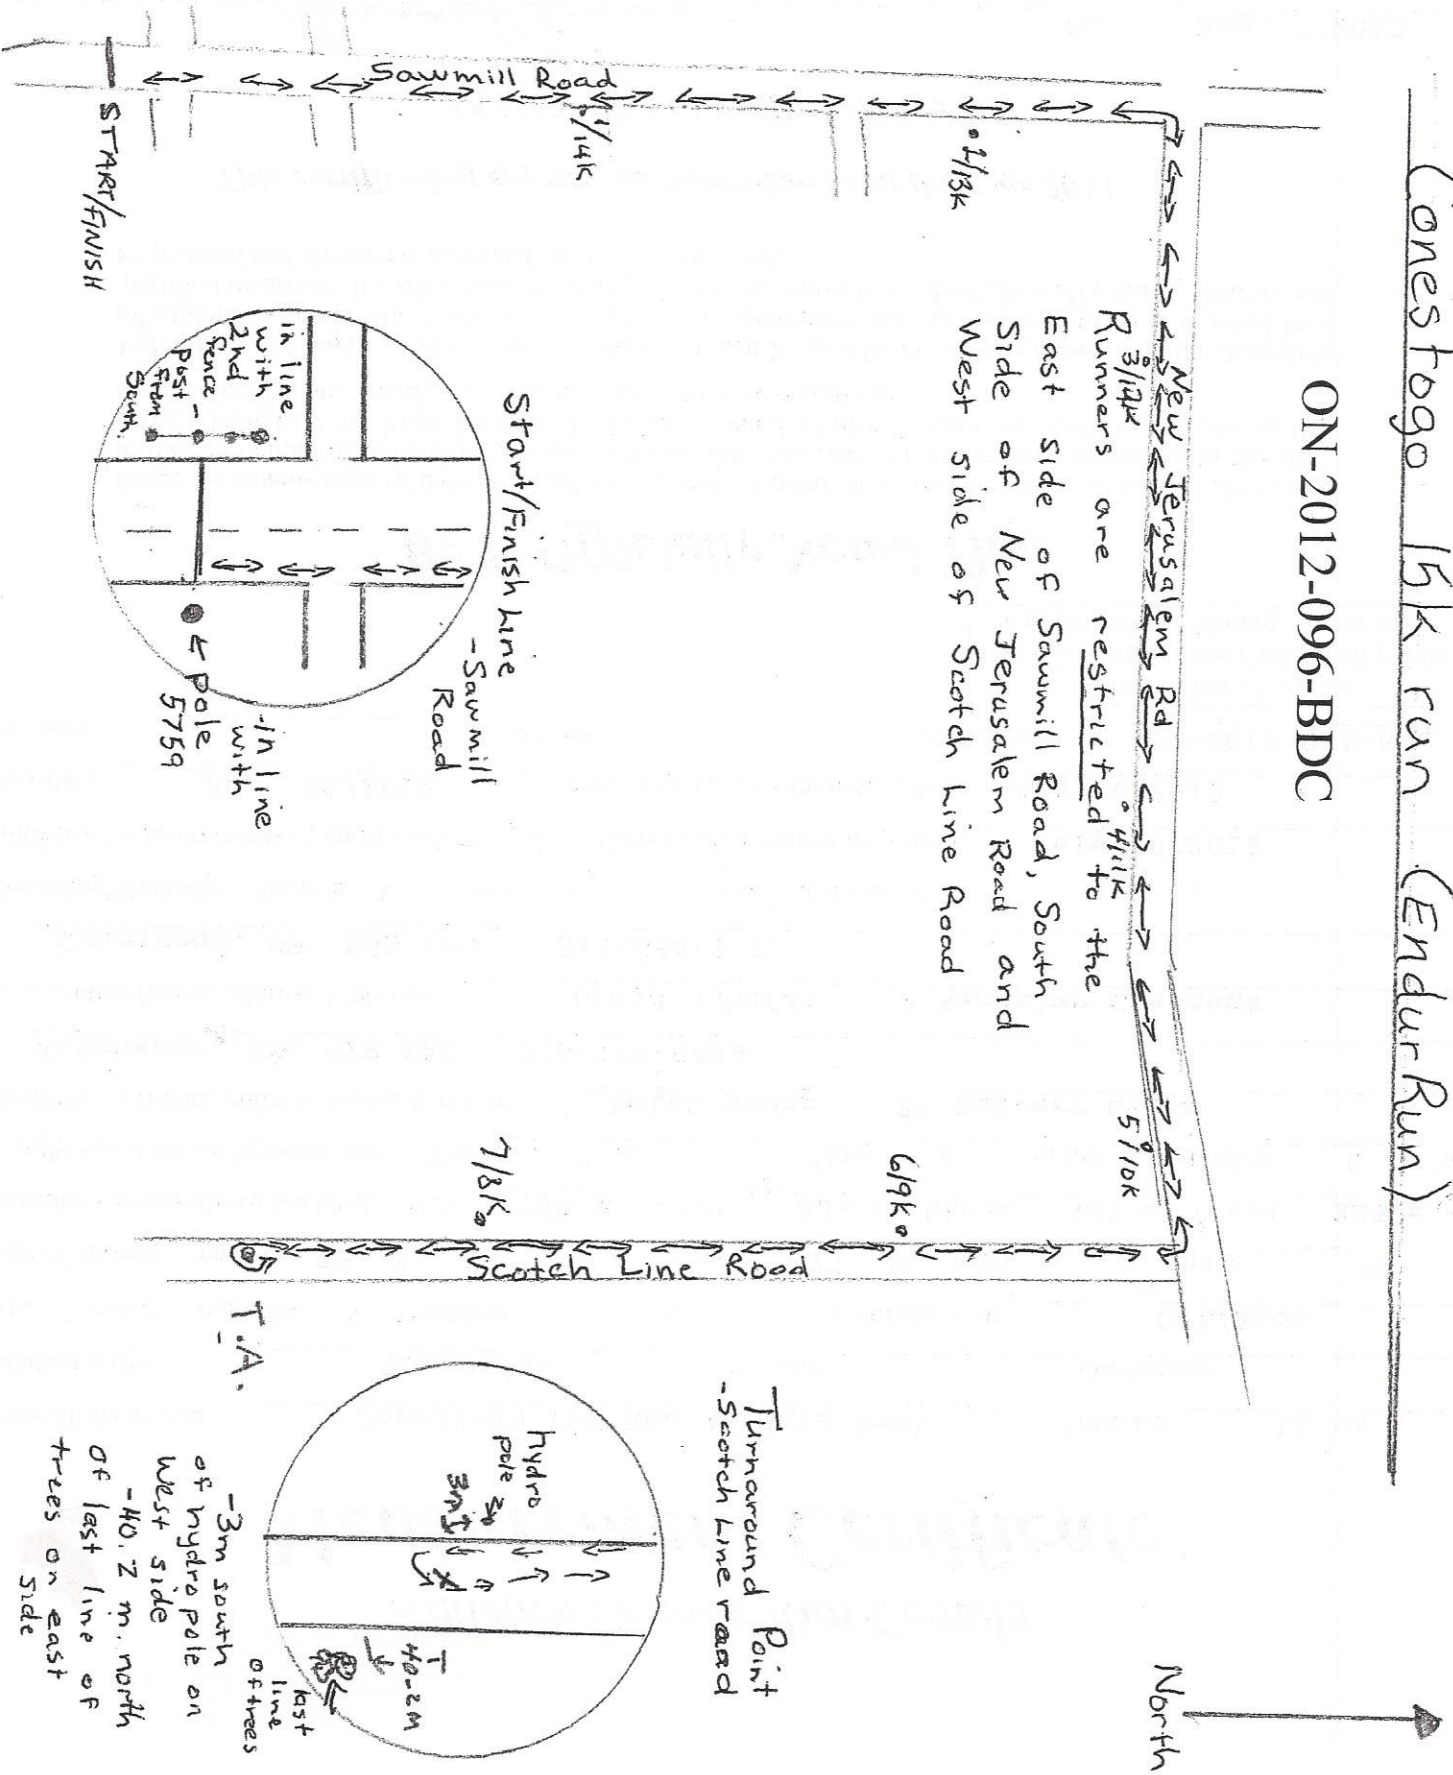 Conestogo 15k run (EndurRun)
ON-2012-096-BDC
North
Sawmill Road
START/FINISH
1/14k
2/13k
New Jerusalem Rd
3/12k
4/11k
5/10k
Runners are restricted to the
East side of Sawmill Road, South
Side of New Jerusalem Road and
West side of Scotch Line Road
6/9k
7/8k
Scotch Line Road
T.A.
Start/Finish Line
-Sawmill
Road
in line
with
2nd
fence
post
from
South
-in line
with
Pole
5759
Turnaround Point
-Scotch Line road
hydro
pole
3m
40.2M
last
line
of trees
-3m south
of hydro pole on
West side
-40.2 m. north
of last line of
trees on east
side